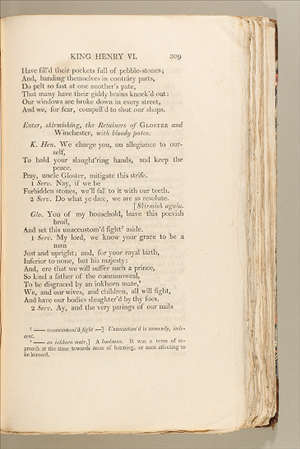 KING HENRY VI. 309
Have fill'd their pockets full of pebble-stones;
And, banding themselves in contráry parts,
Do pelt so fast at one another's pate,
That many have their giddy brains knock'd out:
Our windows are broke down in every street,
And we, for fear, compell'd to shut our shops.
Enter, skirmishing, the Retainers of GLOSTER and
Winchester, with bloody pates.
K. Hen. We charge you, on allegiance to our-
self,
To hold your slaught'ring hands, and keep the
peace.
Pray, uncle Gloster, mitigate this strife.
1 Serv. Nay, if we be
Forbidden stones, we'll fall to it with our teeth.
2 Serv. Do what ye dare, we are as resolute.
[Skirmish again.
Glo. You of my household, leave this peevish
broil,
And set this unaccustom'd fight aside.
1 Serv. My lord, we know your grace to be a
man
Just and upright; and, for your royal birth,
Inferior to none, but his majesty:
And, ere that we will suffer such a prince,
So kind a father of the commonweal,
To be disgraced by an inkhorn mate,
We, and our wives, and children, all will fight,
And have our bodies slaughter'd by thy foes.
2 Serv. Ay, and the very parings of our nails
—— unaccustom'd fight —] Unaccustom'd is unseemly, inde-
cent.
—— an inkhorn mate,] A bookman. It was a term of re-
proach at the time towards men of learning, or men affecting to
be learned.